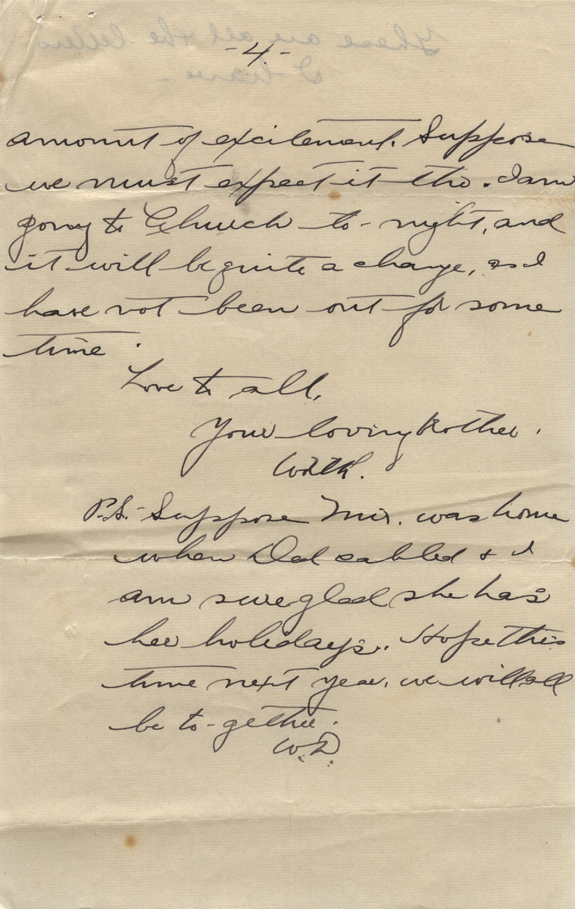 These are all the letters
I have -
-4-
amount of excitement. Suppose
we must expect it tho. I am
going to Church to-night, and
it will be quite a change, as I
have not been out for some
time.
Love to all,
Your loving Brother.
P.S.- Suppose Mir. was home
when Dad cabled & I
am sure glad she has
her holidays. Hope this
time next year, we will all
be to-gether.
W.D.